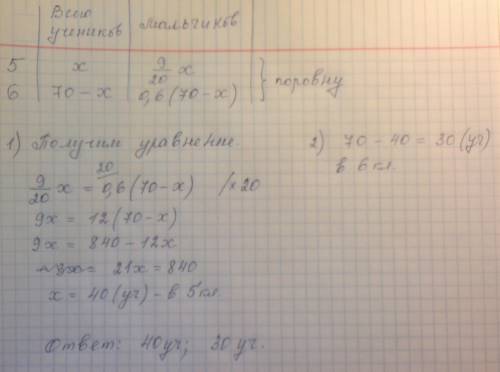 Всего учеников | мальчиков
5 | x | 9/20 x
6 | 70 - x | 0,6 (70 - x) } поровну
1) Получим уравнение.
9/20 x = 0,6 (70 - x) /×20
20
9x = 12 (70 - x)
9x = 840 - 12x
21x = 840
x = 40 (уч) - в 5 кл.
2) 70 - 40 = 30 (уч)
в 6 кл.
Ответ: 40 уч; 30 уч.